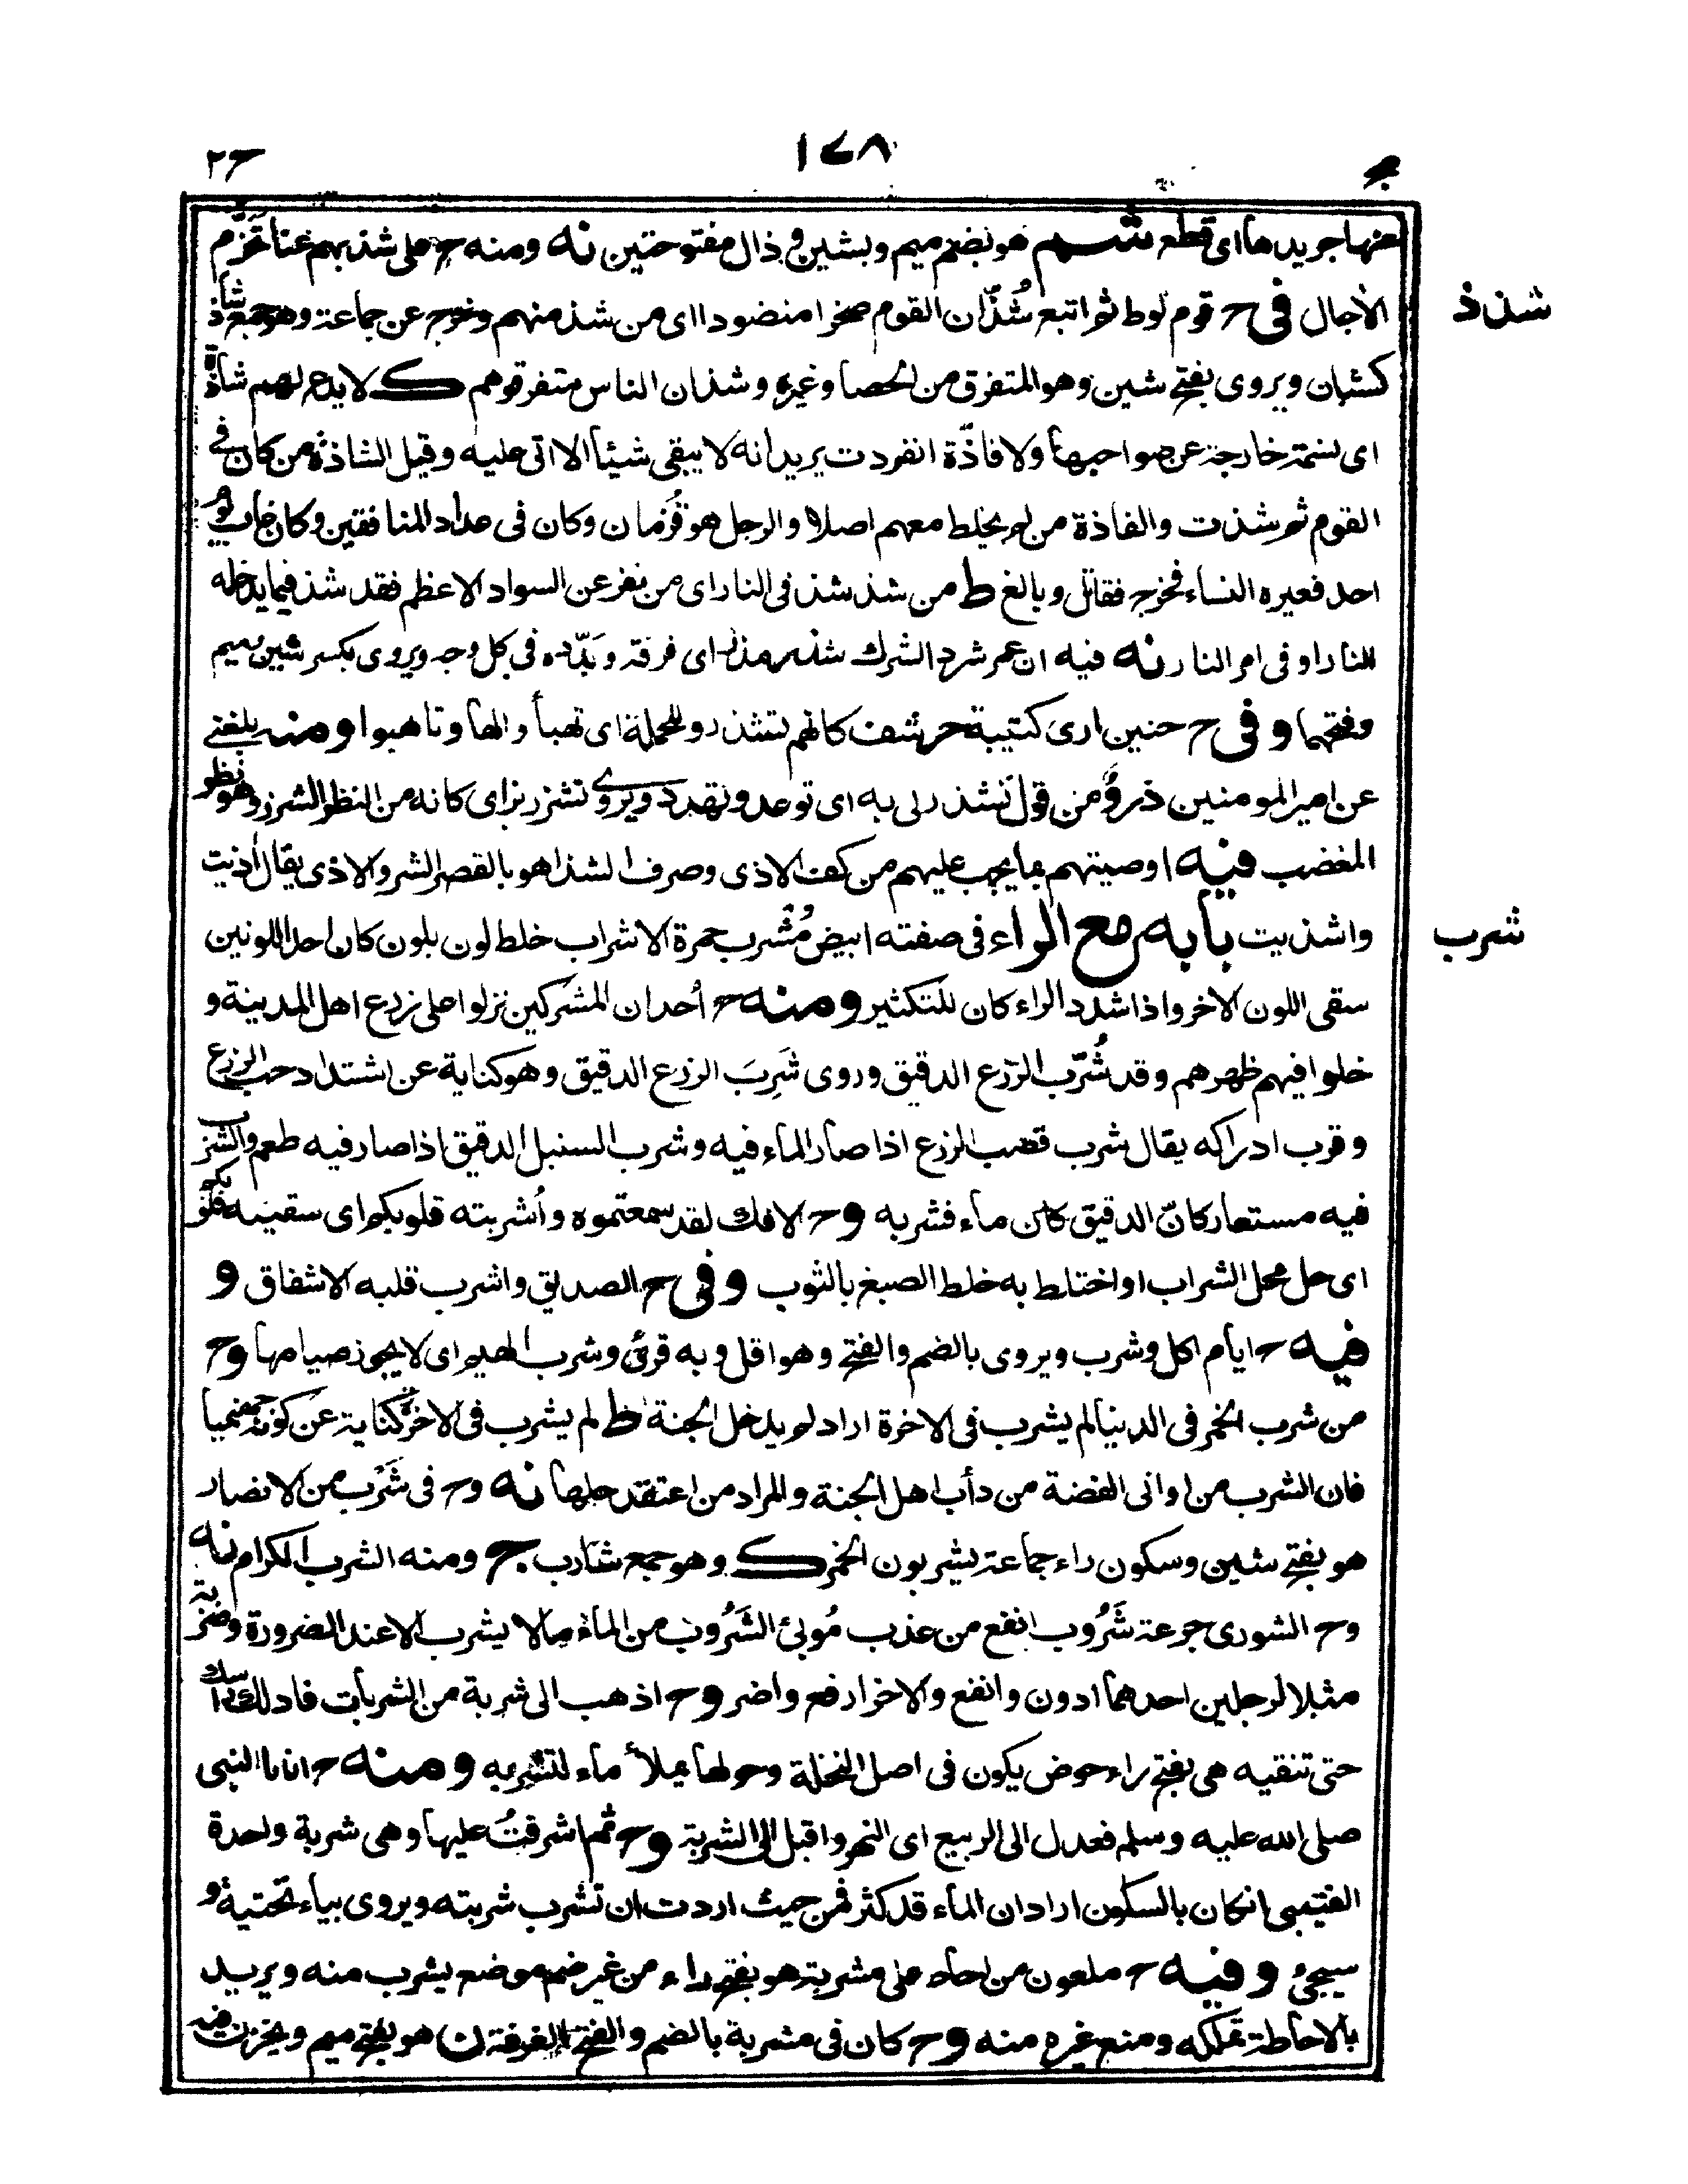 ١٧٨
ج ٢
عنها جريدها اى قطع شم هو بضم ميم وبشين و ذال مفتوحتين نه ومنه ح على شذبهم عنا تخزم
شذذ
الأجال فى ح قوم لوط ثم اتبع شُذّان القوم صخرا منضودا اى من شذ منهم وخرج عن جماعة وهو جمع شاذ
كشبان ويروى بفتح شين وهو المتفرق من الحصا وغيره وشذان الناس متفرقوهم ك لا يدع لهم شاذة
اى نسمة خارجة عن صواحبها ولا فاذّة انفردت يريد انه لا يبقى شيئا الا اتى عليه وقيل الشاذة من كان فى
القوم ثم شذت والفاذة من لم يخلط معهم اصلا والرجل هو قُزمان وكان فى عداد المنافقين وكان غاب يوم
احد فعيره النساء فخرج فقاتل وبالغ ط من شذ شذ فى النار اى من نفر عن السواد الاعظم فقد شذ فيما يدخله
للنار او فى امر النار نه فيه ان عمر شرد الشرك شذر مذر اى فرقه وبَدّده فى كل وجه ويروى بكسر شين وميم
وفتحهما وفى ح حنين ارى كتيبة حرشف كانهم تشذروا للحملة اى تهيأوا لها وتاهبوا ومنه بلغنى
عن امير المومنين ذروٌ من قول تشذر لى به اى توعد وتهدد ويروى تشزر بزاى كانه من النظر الشزر وهو نظر
المغضب فيه اوصيتهم بما يجب عليهم من كف الاذى وصرف الشذا هو بالقصر الشر والاذى يقال أذيت
شرب
واشذيت بابه مع الراء فى صفته ابيض مُشْرب حمرة الاشراب خلط لون بلون كان احد اللونين
سقى اللون الاخر واذا شدد الراء كان للتكثير ومنه ح أحد ان المشركين نزلوا على زرع اهل المدينة و
خلوا فيهم ظهرهم وقد شُرّب الزرع الدقيق وروى شَرِبَ الزرع الدقيق وهو كناية عن اشتداد حب الزرع
وقرب ادراكه يقال شرب قصب الزرع اذا صار الماء فيه وشرب السنبل الدقيق اذا صار فيه طعم والشرب
فيه مستعار كانّ الدقيق كان ماء فشربه وح الافك لقد سمعتموه وأشربته قلوبكم اى سقيته قلوبكم
اى حل محل الشراب او اختلط به خلط الصبغ بالثوب وفى ح الصديق واشرب قلبه الاشفاق و
فيه ح ايام اكل وشرب ويروى بالضم والفتح وهو اقل وبه قرئ وشرب الهيم اى لا يجوز صيامها وح
من شرب الخمر فى الدنيا لم يشرب فى الاخرة اراد لم يدخل الجنة ط لم يشرب فى الاخرة كناية عن كونه جهنميا
فان الشرب من اوانى الفضة من دأب اهل الجنة والمراد من اعتقد حلها نه وح فى شَرْب من الانصار
هو بفتح شين وسكون راء جماعة يشربون الخمر ك وهو جمع شارب ج ومنه الشرب الكرام نه
وح الشورى جرعة شَرُوب انفع من عذب مُوبئ الشَرُوب من الماء ما لا يشرب الا عند الضرورة وضربه
مثلا لرجلين احدهما ادون وانفع والاخر ارفع واضر وح اذهب الى شربة من الشربات فادلك رأسك
حتى تنقيه هى بفتح راء حوض يكون فى اصل النخلة وحولها يملأ ماء لتشربه ومنه ح اتانا النبى
صلى الله عليه وسلم فعدل الى الربيع اى النهر واقبل الى الشربة وح ثم اشرفتُ عليها وهى شربة واحدة
القتيبى ان كان بالسكون اراد ان الماء قد كثر فمن حيث اردت ان تشرب شربته ويروى بياء تحتية و
سيجئ وفيه ح ملعون من احاط على مشربة هو بفتح راء من غير ضم موضع يشرب منه ويريد
بالاحاطة تملكه ومنع غيره منه وح كان فى مشربة بالضم والفتح الغرفة ن هو بفتح ميم ويخزن فيه